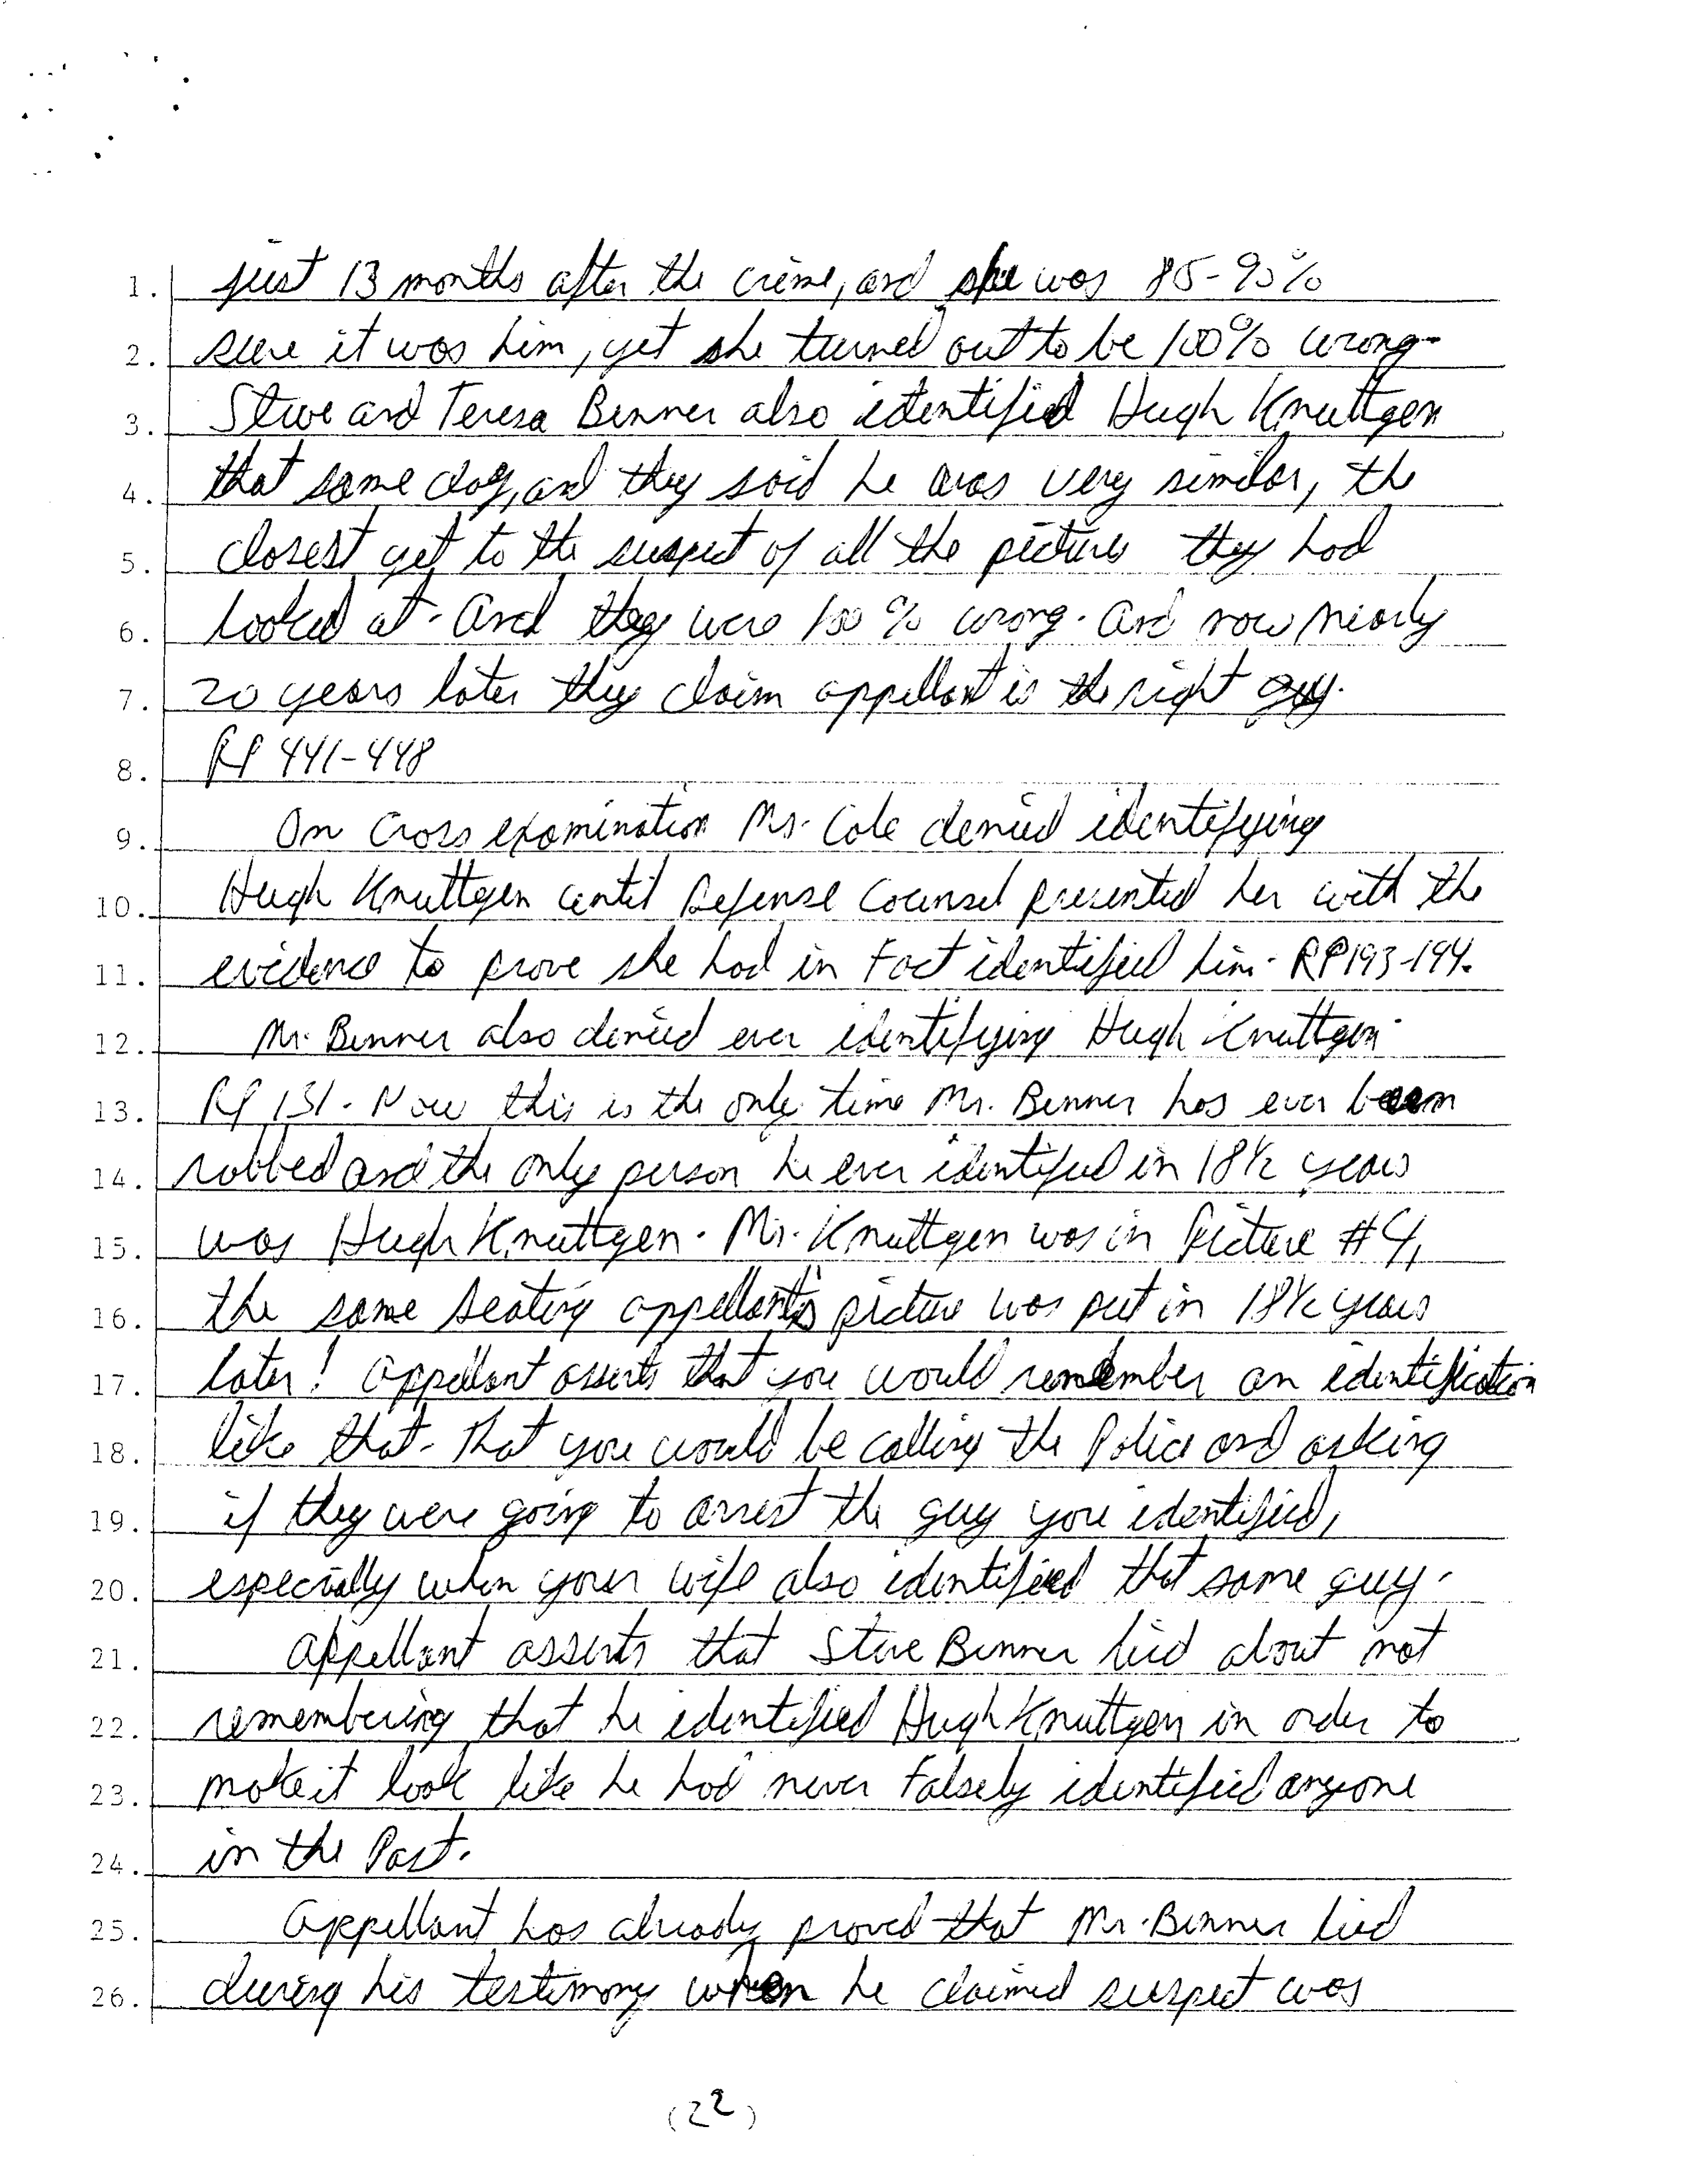 1. just 13 months after the crime, and she was 85-90%
2. sure it was him, yet she turned out to be 100% wrong.
3. Steve and Teresa Benner also identified Hugh Knuttgen
4. that same day, and they said he was very similar, the
5. closest yet to the suspect of all the pictures they had
6. looked at. And they were 100% wrong. And now nearly
7. 20 years later they claim appellant is the right guy.
8. RP 441-448
9. On Cross examination Ms. Cole denied identifying
10. Hugh Knuttgen until Defense Counsel presented her with the
11. evidence to prove she had in Fact identified him. RP193-194.
12. Mr. Benner also denied ever identifying Hugh Knuttgen.
13. RP 151. Now this is the only time Mr. Benner has ever been
14. robbed and the only person he ever identified in 18½ years
15. was Hugh Knuttgen. Mr. Knuttgen was in Picture #4,
16. the same seating appellant's picture was put in 18½ years
17. later! Appellant asserts that you would remember an identification
18. like that. That you would be calling the Police and asking
19. if they were going to arrest the guy you identified,
20. especially when your wife also identified that same guy.
21. Appellant asserts that Steve Benner lied about not
22. remembering that he identified Hugh Knuttgen in order to
23. make it look like he had never Falsely identified anyone
24. in the Past.
25. Appellant has already proved that Mr. Benner lied
26. during his testimony when he claimed suspect was
(22)